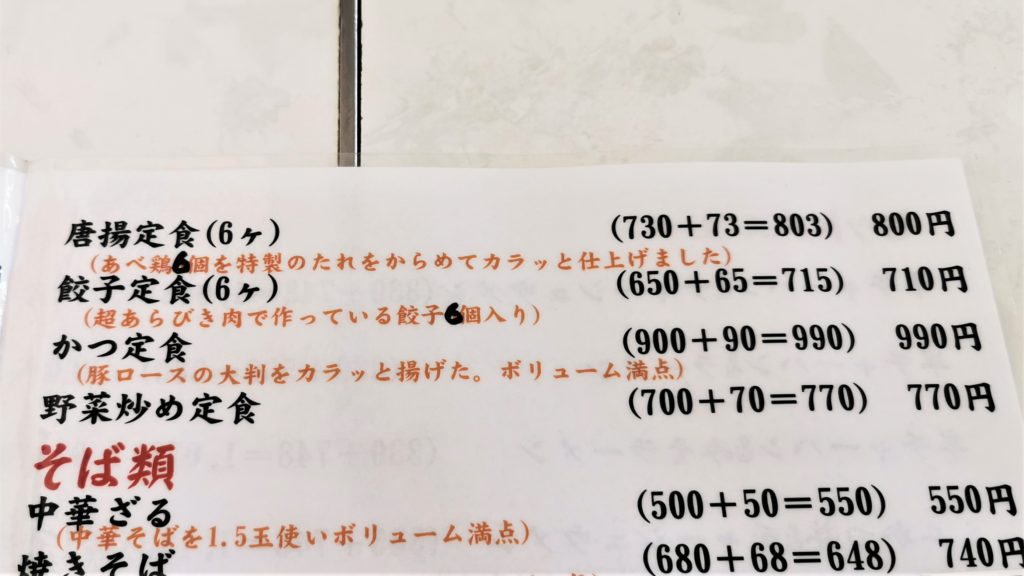 唐揚定食(6ヶ) (730+73=803) 800円
(あべ鶏6個を特製のたれをからめてカラッと仕上げました)
餃子定食(6ヶ) (650+65=715) 710円
(超あらびき肉で作っている餃子6個入り)
かつ定食 (900+90=990) 990円
(豚ロースの大判をカラッと揚げた。ボリューム満点)
野菜炒め定食 (700+70=770) 770円
そば類
中華ざる (500+50=550) 550円
(中華そばを1.5玉使いボリューム満点)
焼きそば (680+68=648) 740円